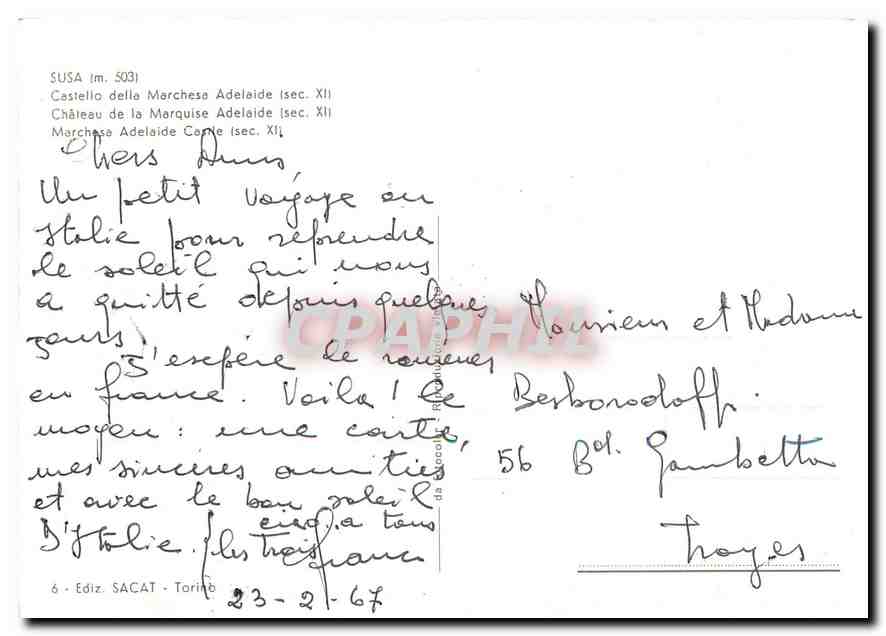 SUSA (m. 503)
Castello della Marchesa Adelaide (sec. XI)
Château de la Marquise Adelaide (sec. XI)
Marchesa Adelaide Castle (sec. XI)
Chers Amis,
Un petit voyage en
Italie pour reprendre
le soleil qui nous
a quitté depuis quelques
jours.
J'espère le ramener
en france. Voila! le
moyen: une carte,
mes sincères amitiés
et avec le bon soleil
D'Italie.
a tous
les trois
6 - Ediz. SACAT - Torino
23-2-67
da Fotocolor - Riproduzione vietata
Monsieur et Madame
Besborodoff.
56 Bd. Gambetta
Troyes
CPAPHIL